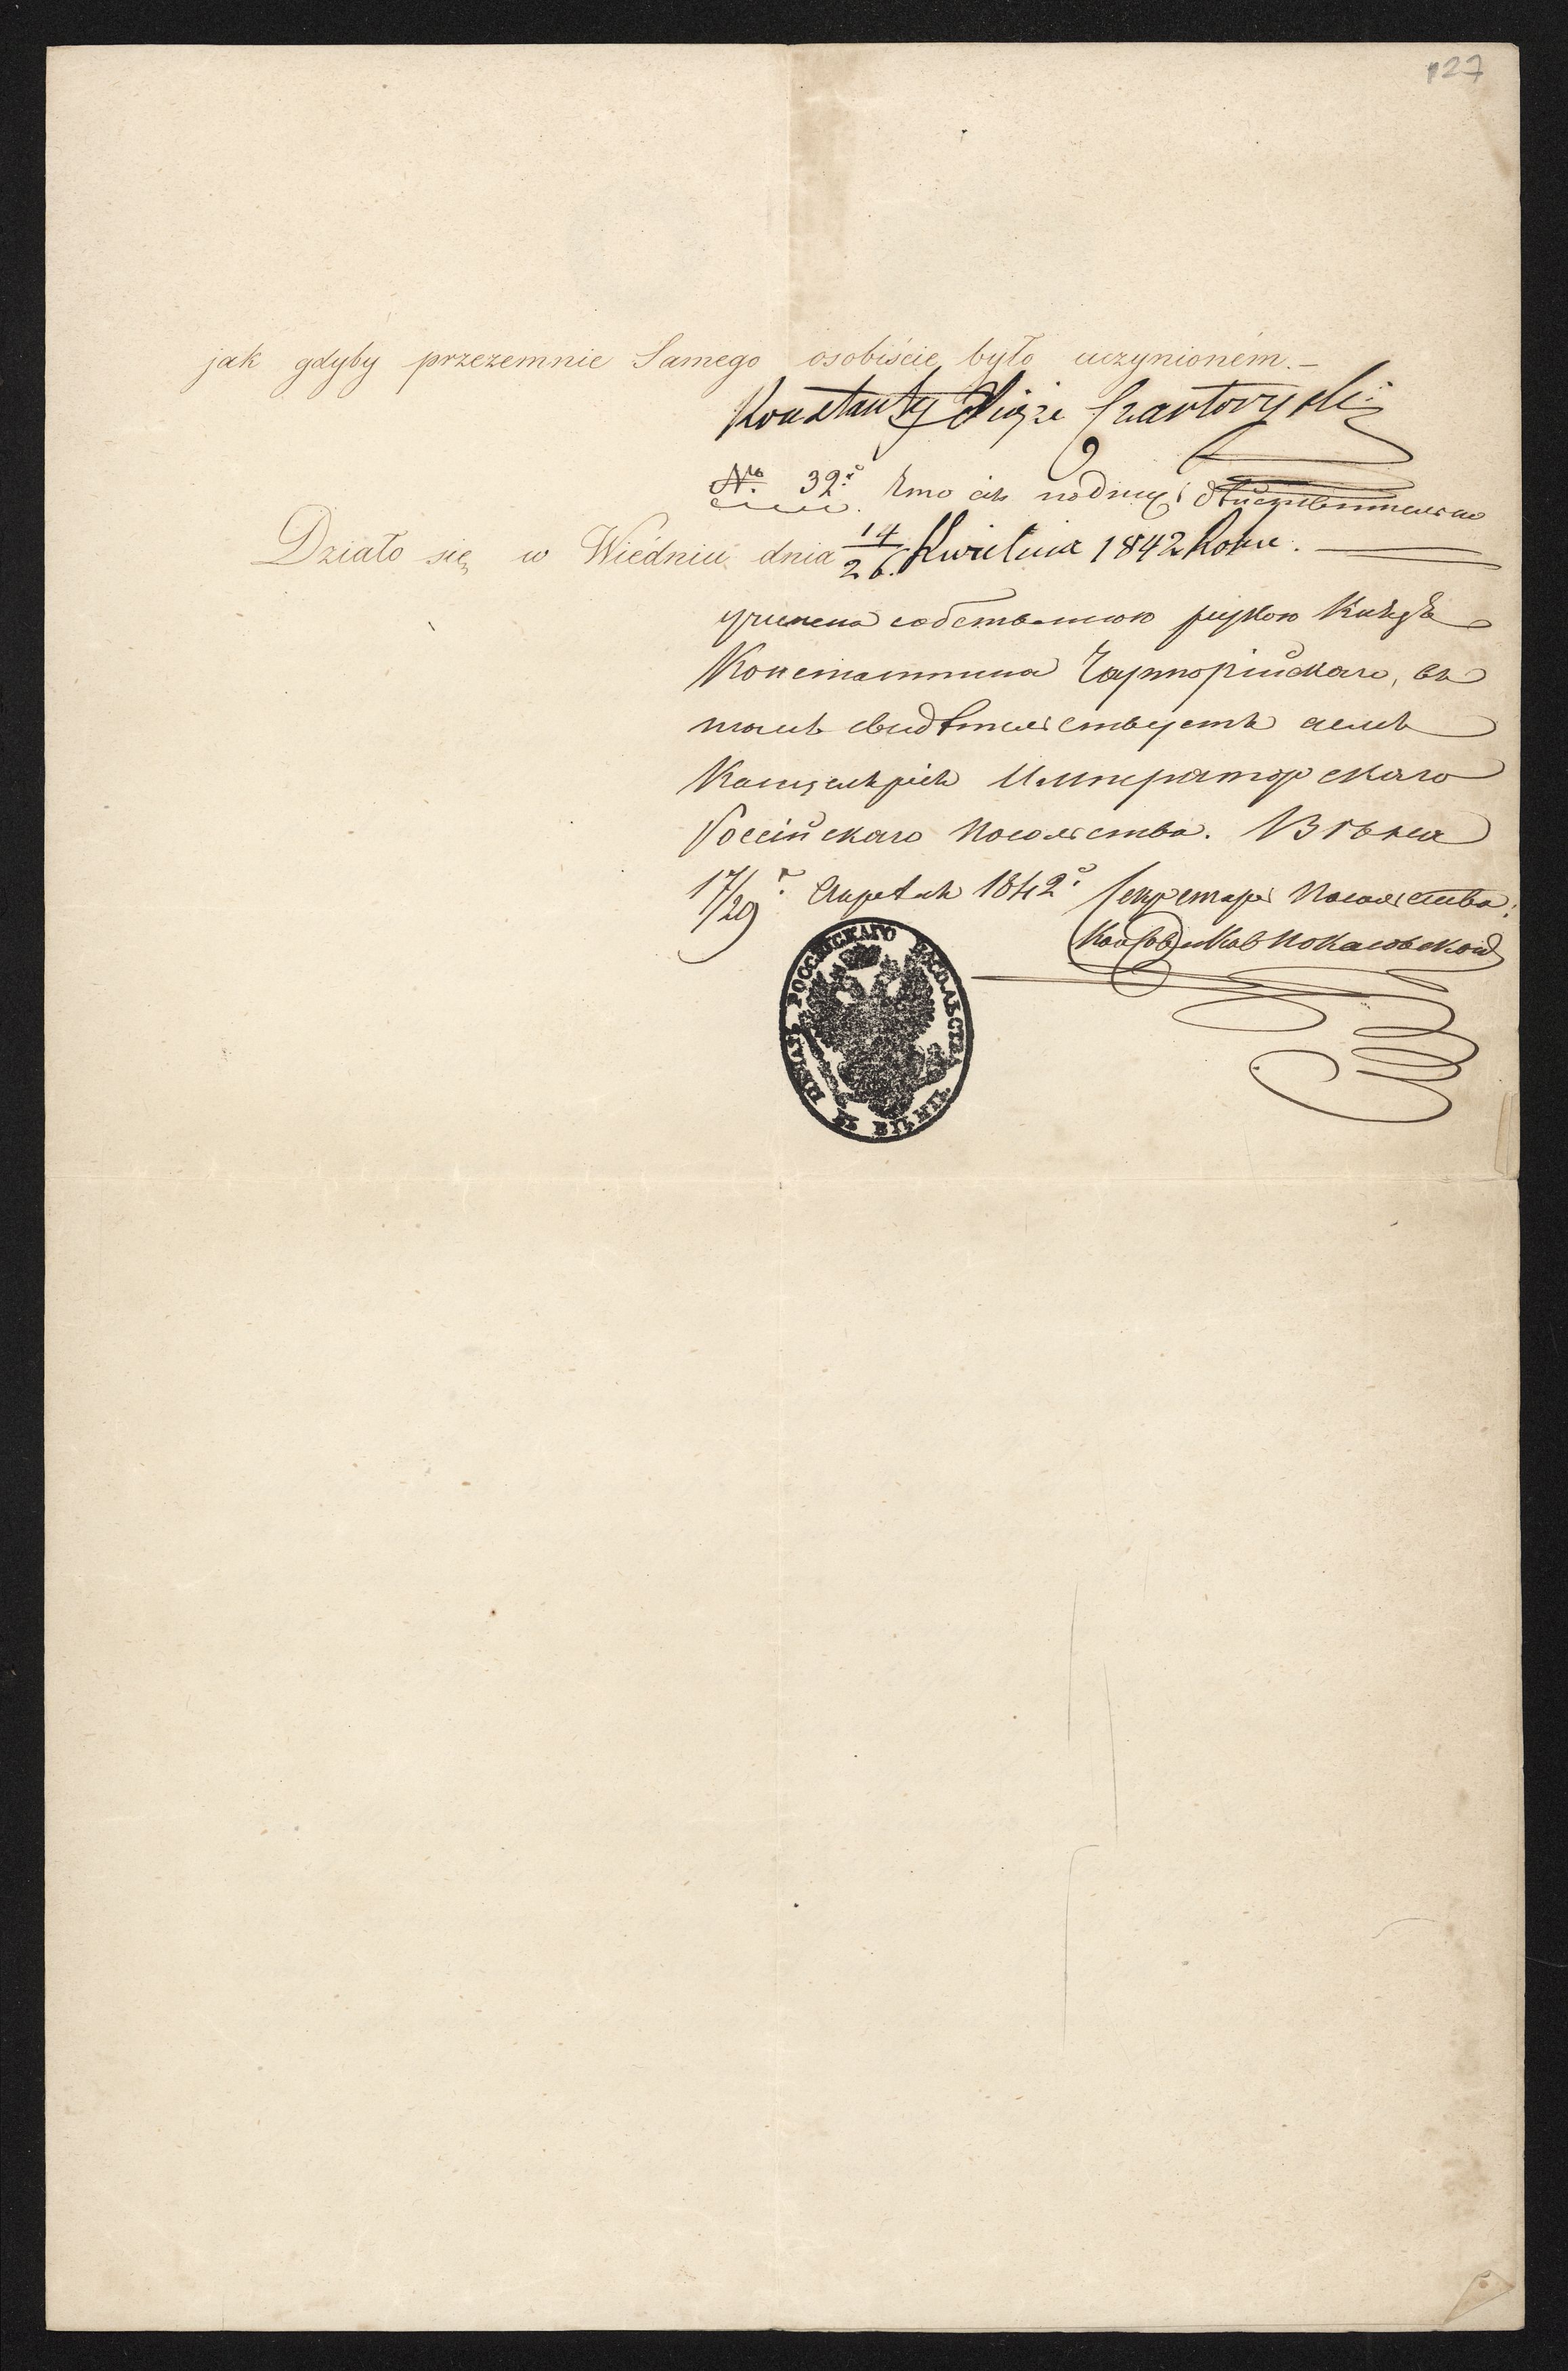 127
jak gdyby przezemnie Samego osobiście było uczynioném.—
Konstanty Xiąże Czartoryski
№ 32. Что сія подпись действительно
Działo się w Wiédniu, dnia 14/26. Kwietnia 1842 Roku.
учинена собственною рукою Князя
Константина Чарторійскаго, въ
томъ свидѣтельствуетъ
Канцелярія Императорскаго
Россійскаго Посольства. Вѣна
17/29 Апрѣля 1842 Секретарь Посольства:
ПЕЧАТЬ РОССІЙСКАГО ПОСОЛЬСТВА ВЪ ВѢНѢ